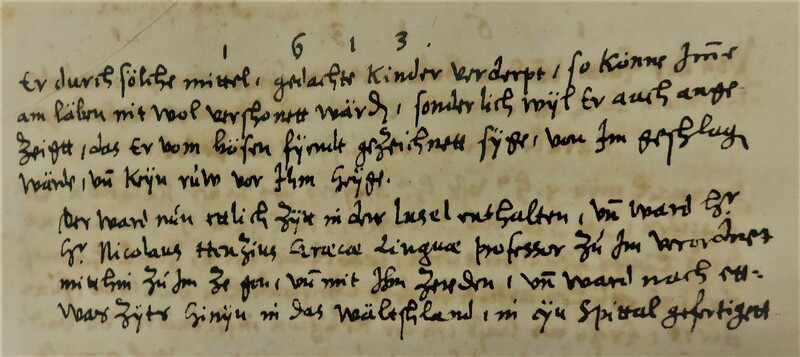 1 6 1 3 .
Er durch sölche mittel, gedachte Kinder verderpt, so könne Im̄e
am läben nit wol verschonett wärdē, sonderlich wyl Er auch ange
Zeigtt, das Er vom bösen fyendt gezeichnett syge, von Im geschlagē
wärde, vn̄ keyn rúw vor Ihm heyge.
Der ward nún ettlich Zytt in der Insel enthalten, vn̄ ward Hr
Hr Nicolaus Henzius Graecae Linguae Professor zú Im verordnet
mitthin zú Im ze gon, vn̄ mit Ihm zereden, vn̄ ward nach ett-
was Zyts hinyn in das wältschland, in eyn Spittal gefertigett